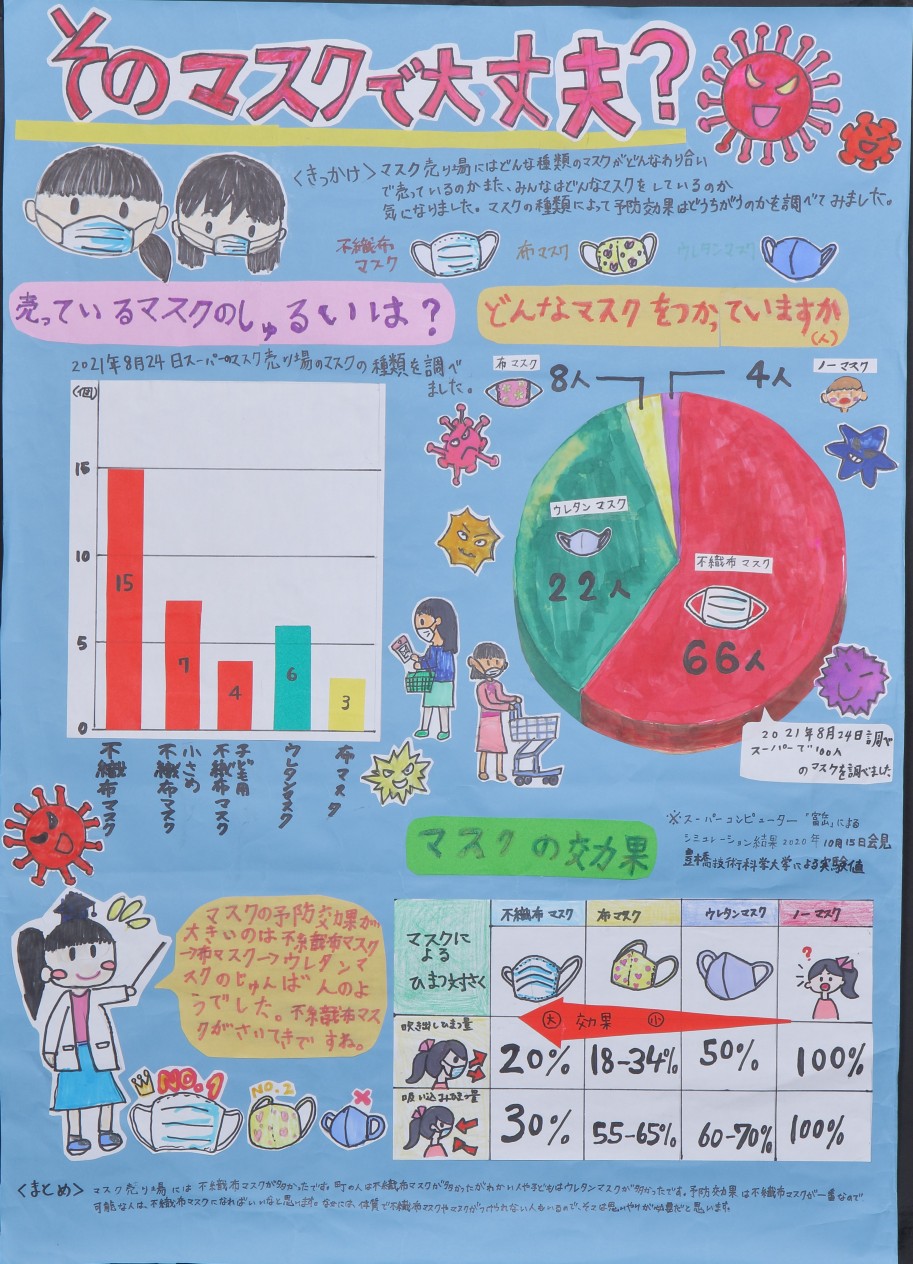 そのマスクで大丈夫?
〈きっかけ〉マスク売り場にはどんな種類のマスクがどんなわり合い
で売っているのかまた、みんなはどんなマスクをしているのか
気になりました。マスクの種類によって予防効果はどうちがうのかを調べてみました。
不織布
マスク
布マスク
ウレタンマスク
売っているマスクのしゅるいは?
2021年8月24日スーパーのマスク売り場のマスクの種類を調べ
ました。
(個)
15
10
5
0
15
7
4
6
3
不織布マスク
小さめ
不織布マスク
子ども用
不織布マスク
ウレタンマスク
布マスク
どんなマスクをつかっていますか
(人)
布マスク
8人
4人
ノーマスク
ウレタンマスク
22人
不織布マスク
66人
2021年8月24日調べ
スーパーで100人
のマスクを調べました
マスクの効果
※スーパーコンピューター"富岳"による
シミュレーション結果2020年10月15日会見
豊橋技術科学大学による実験値
マスクの予防効果が
大きいのは不織布マスク
→布マスク→ウレタンマ
スクのじゅんばんのよ
うでした。不織布マス
クがさいてきですね。
NO.1
NO.2
マスクに
よる
ひまつ対さく
不織布マスク
布マスク
ウレタンマスク
ノーマスク
?
大 効果 小
吹き出しひまつ量
20% 18-34% 50% 100%
吸い込みひまつ量
30% 55-65% 60-70% 100%
〈まとめ〉マスク売り場には不織布マスクが多かったです。町の人は不織布マスクが多かったがわかい人や子どもはウレタンマスクが多かったです。予防効果は不織布マスクが一番なので
可能な人は、不織布マスクになればいいなと思います。なかには、体質で不織布マスクやマスクがつけられない人もいるので、そこは思いやりが必要だと思います。